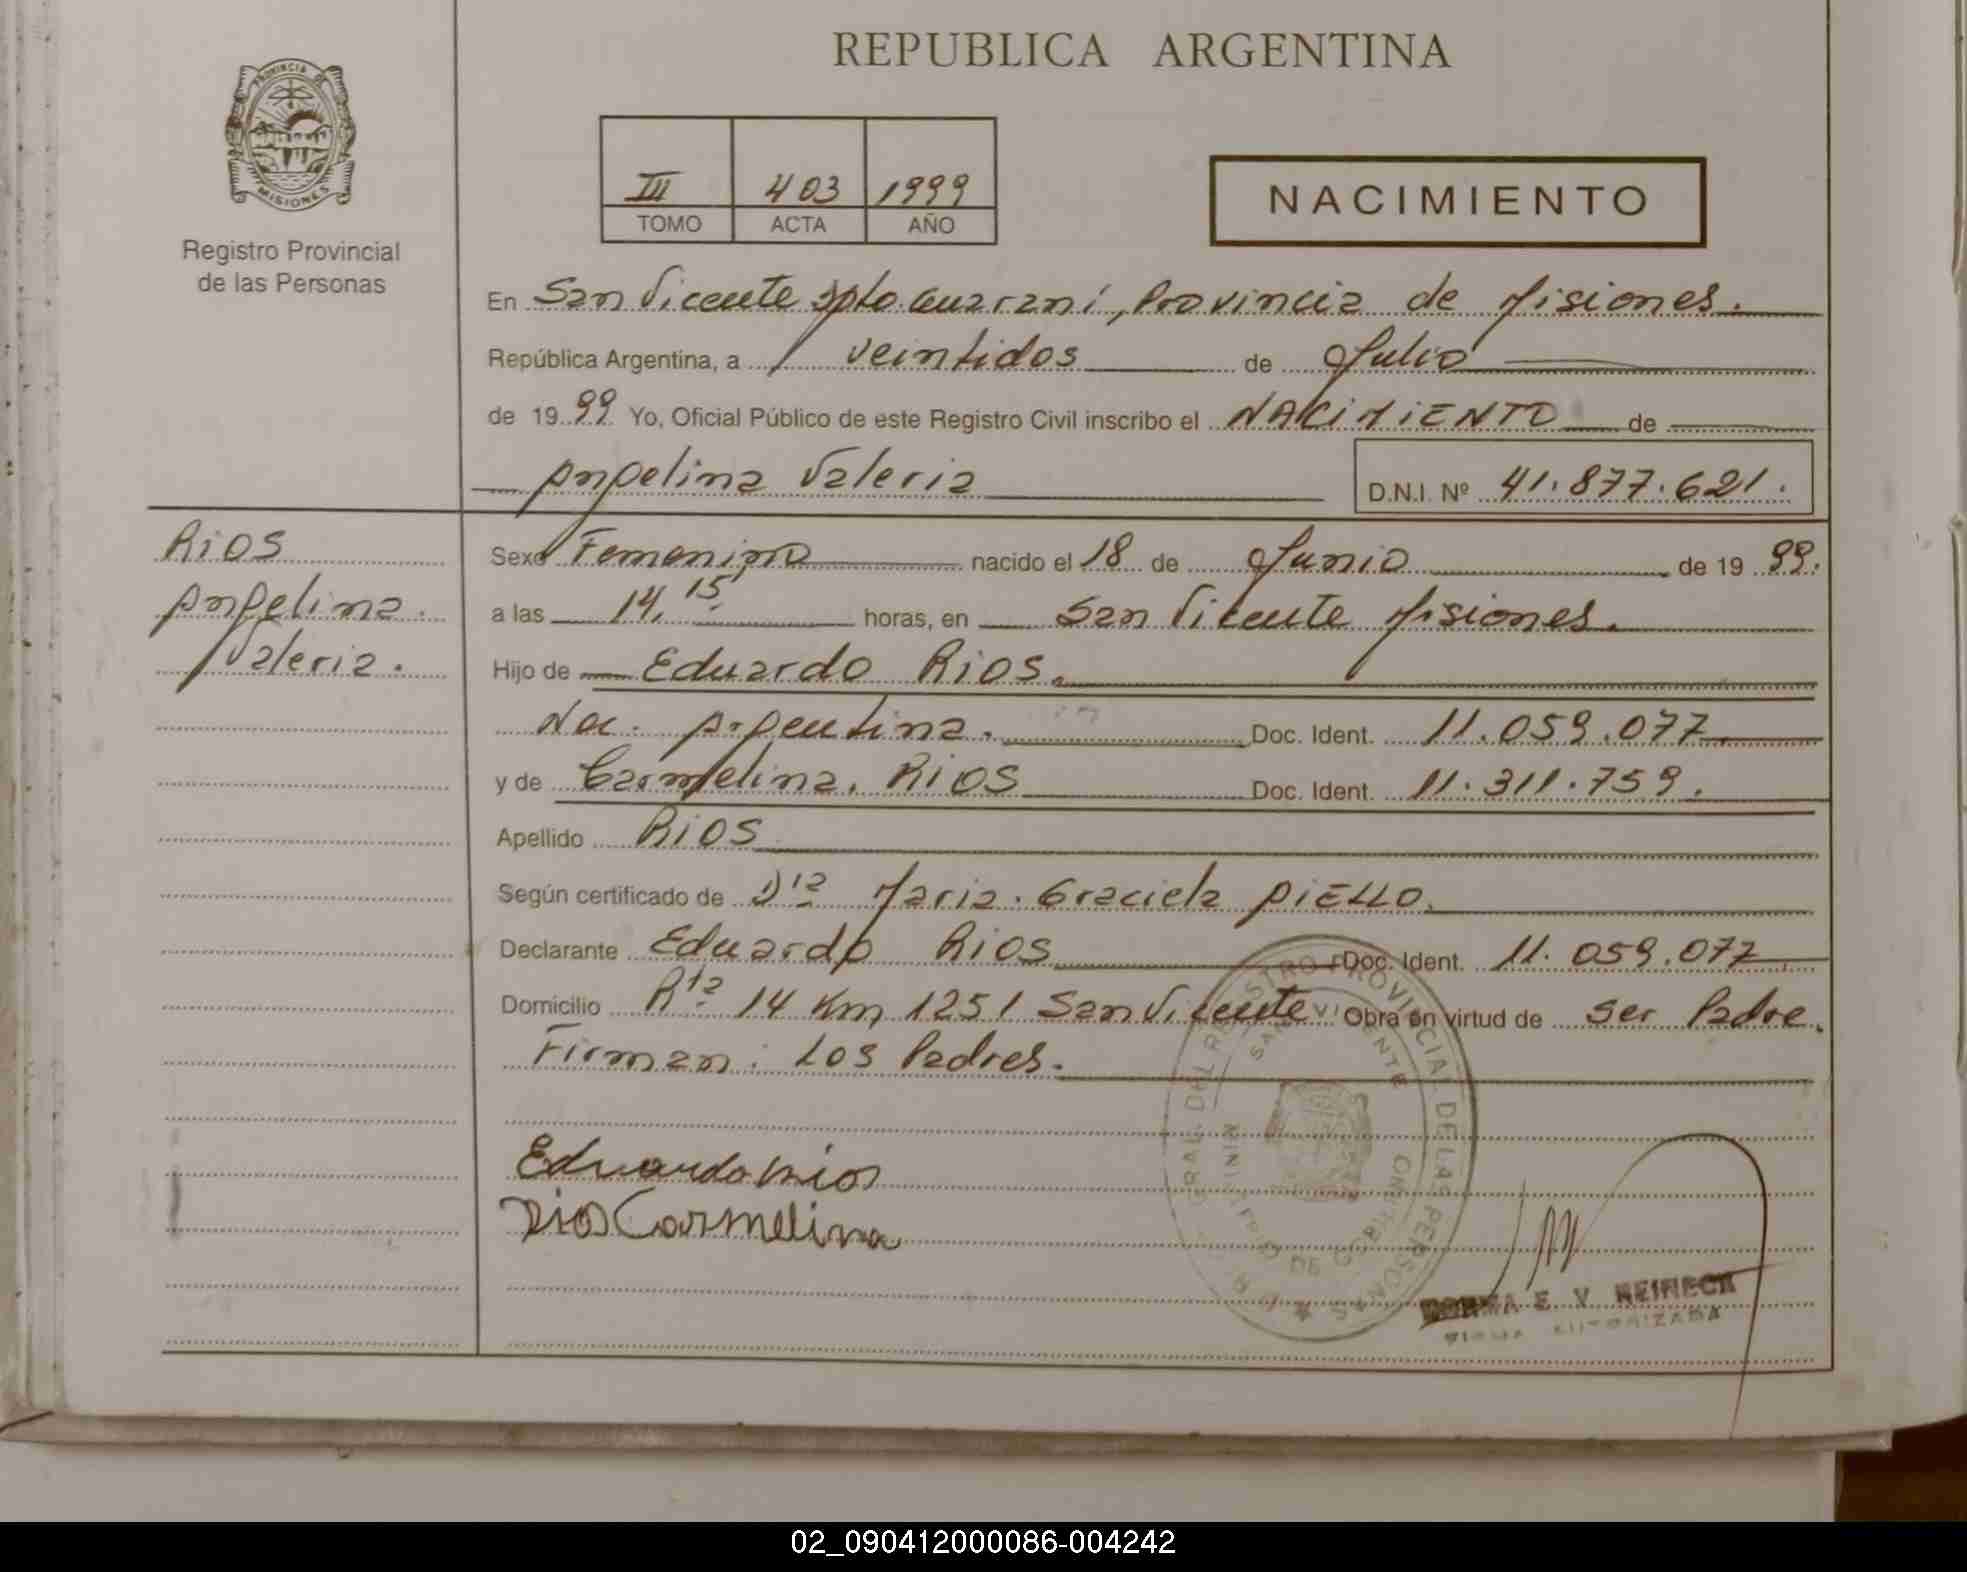 REPUBLICA ARGENTINA
PROVINCIA DE
MISIONES
Registro Provincial
de las Personas
III 403 1999
TOMO ACTA AÑO
NACIMIENTO
En San Vicente Dpto. Guaraní, Provincia de Misiones.
República Argentina, a veintidos de Julio
de 1999 Yo, Oficial Público de este Registro Civil inscribo el NACIMIENTO de
Angelina Valeria D.N.I. Nº 41.877.621.
Rios
Angelina
Valeria.
Sexo Femenino nacido el 18 de Junio de 1999.
a las 14,15 horas, en San Vicente Misiones.
Hijo de Eduardo Rios.
Na. Argentina. Doc. Ident. 11.059.077
y de Carmelina. Rios Doc. Ident. 11.311.759.
Apellido Rios
Según certificado de Dra Maria. Graciela DiELLO.
Declarante Eduardo Rios Doc. Ident. 11.059.077
Domicilio Rta 14 Km 1251 San Vicente Obra en virtud de ser Padre.
Firman: Los Padres.
Eduardo Rios
Rios Carmelina
GRAL. DEL REGISTRO PROVINCIAL DE LAS PERSONAS
SAN VICENTE
MINISTERIO DE GOBIERNO
NORMA E. V. NEIRECK
FIRMA AUTORIZADA
02_090412000086-004242